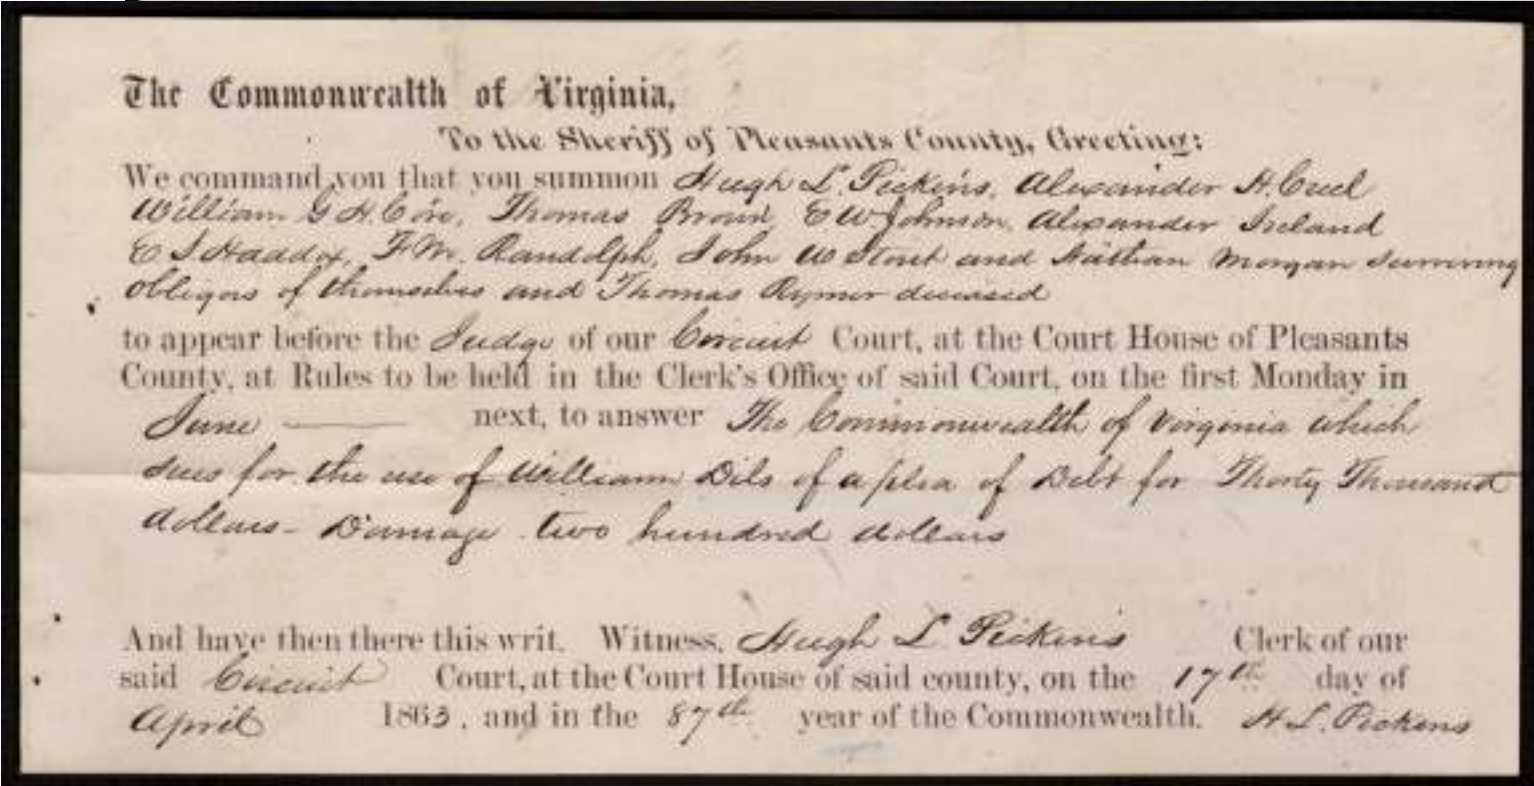 The Commonwealth of Virginia,
To the Sheriff of Pleasants County, Greeting:
We command you that you summon Hugh L. Pickens, Alexander H. Creel
William G. H. Core, Thomas Brown, E W Johnson, Alexander Ireland
E S Haddox, F. M. Randolph, John W Stout and Nathan Morgan surviving
obligors of themselves and Thomas Rymer deceased
to appear before the Judge of our Circuit Court, at the Court House of Pleasants
County, at Rules to be held in the Clerk's Office of said Court, on the first Monday in
June — next, to answer The Commonwealth of Virginia which
sues for the use of William Dils of a plea of Debt for Thirty Thousand
dollars - Damage two hundred dollars
And have then there this writ. Witness, Hugh L. Pickens Clerk of our
said Circuit Court, at the Court House of said county, on the 17th day of
April 1863, and in the 87th year of the Commonwealth. H. L. Pickens